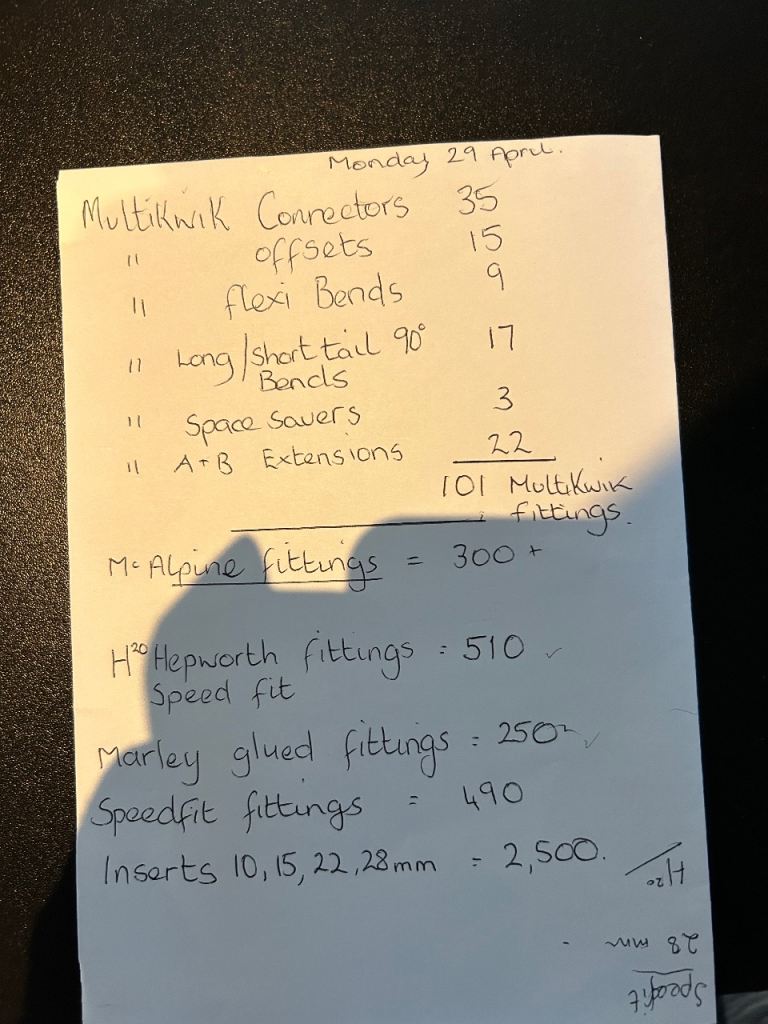 Monday 29 April.
Multikwik Connectors 35
" offsets 15
" flexi Bends 9
" Long/short tail 90° 17
Bends
" Space Savers 3
" A+B Extensions 22
101 Multikwik
fittings.
Mc Alpine fittings = 300+
H20 Hepworth fittings = 510 ✓
Speed fit
Marley glued fittings = 250 ✓
Speedfit fittings = 490
Inserts 10, 15, 22, 28mm = 2,500.
H20
28 mm -
Speofit